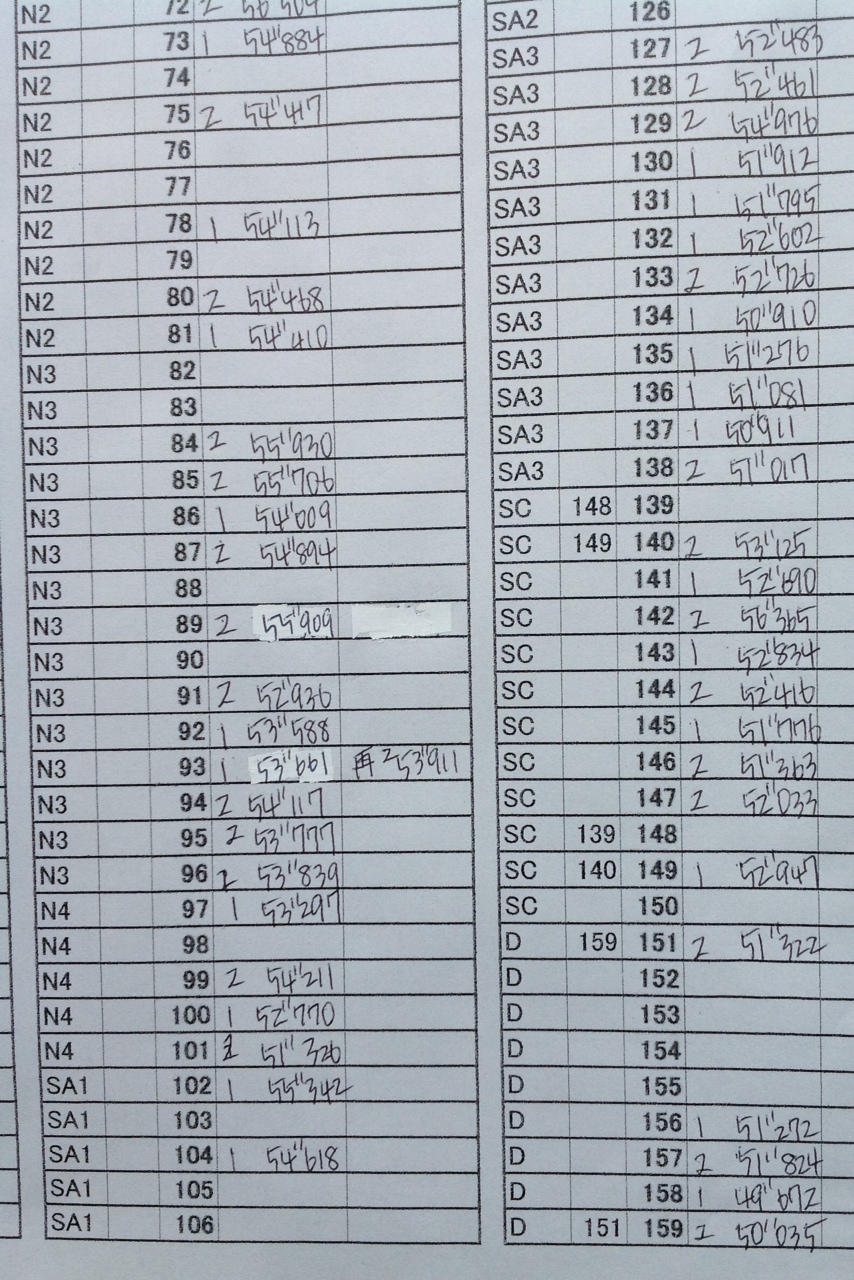 N2 72 2 56"504
N2 73 1 54"884
N2 74
N2 75 2 54"417
N2 76
N2 77
N2 78 1 54"113
N2 79
N2 80 2 54"468
N2 81 1 54"410
N3 82
N3 83
N3 84 2 55"930
N3 85 2 55"706
N3 86 1 54"009
N3 87 2 54"894
N3 88
N3 89 2 55"909
N3 90
N3 91 2 52"936
N3 92 1 53"588
N3 93 1 53"661 再 2 53"911
N3 94 2 54"117
N3 95 2 53"777
N3 96 2 53"839
N4 97 1 53"297
N4 98
N4 99 2 54"211
N4 100 1 52"770
N4 101 51"326
SA1 102 1 55"342
SA1 103
SA1 104 1 54"618
SA1 105
SA1 106
SA2 126
SA3 127 2 52"483
SA3 128 2 52"461
SA3 129 2 54"976
SA3 130 1 51"912
SA3 131 1 51"795
SA3 132 1 52"602
SA3 133 2 52"726
SA3 134 1 50"910
SA3 135 1 51"276
SA3 136 1 51"081
SA3 137 1 50"911
SA3 138 2 51"017
SC 148 139
SC 149 140 2 53"125
SC 141 1 52"690
SC 142 2 56"365
SC 143 1 52"834
SC 144 2 52"416
SC 145 1 51"776
SC 146 2 51"363
SC 147 2 52"033
SC 139 148
SC 140 149 1 52"947
SC 150
D 159 151 2 51"322
D 152
D 153
D 154
D 155
D 156 1 51"272
D 157 2 51"824
D 158 1 49"672
D 151 159 2 50"035